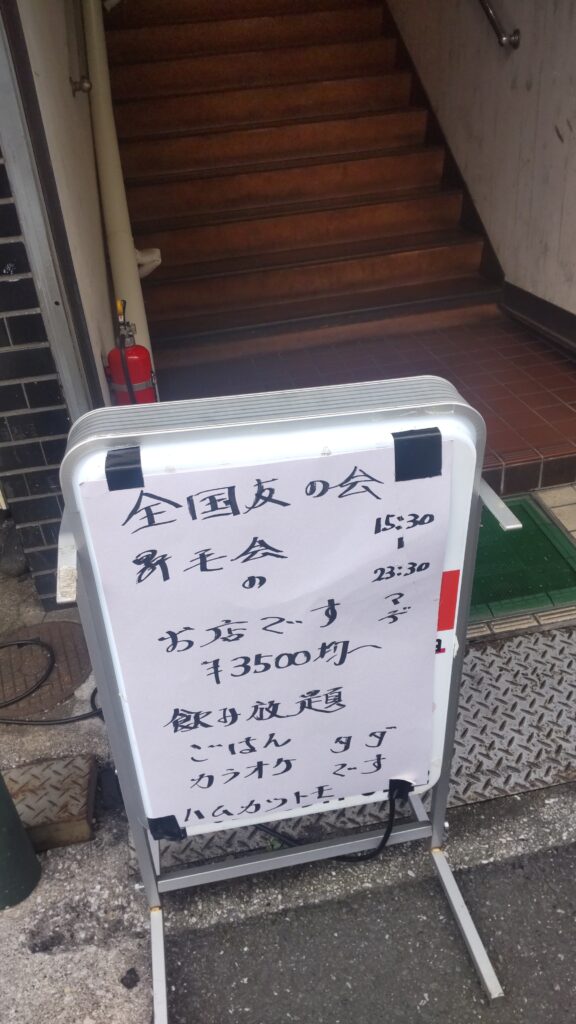 全国友の会
昇毛会
の
15:30
〜
23:30
マデ
お店です
¥3500均一
飲み放題
ごはん タダ
カラオケ です
ハムカツトモ